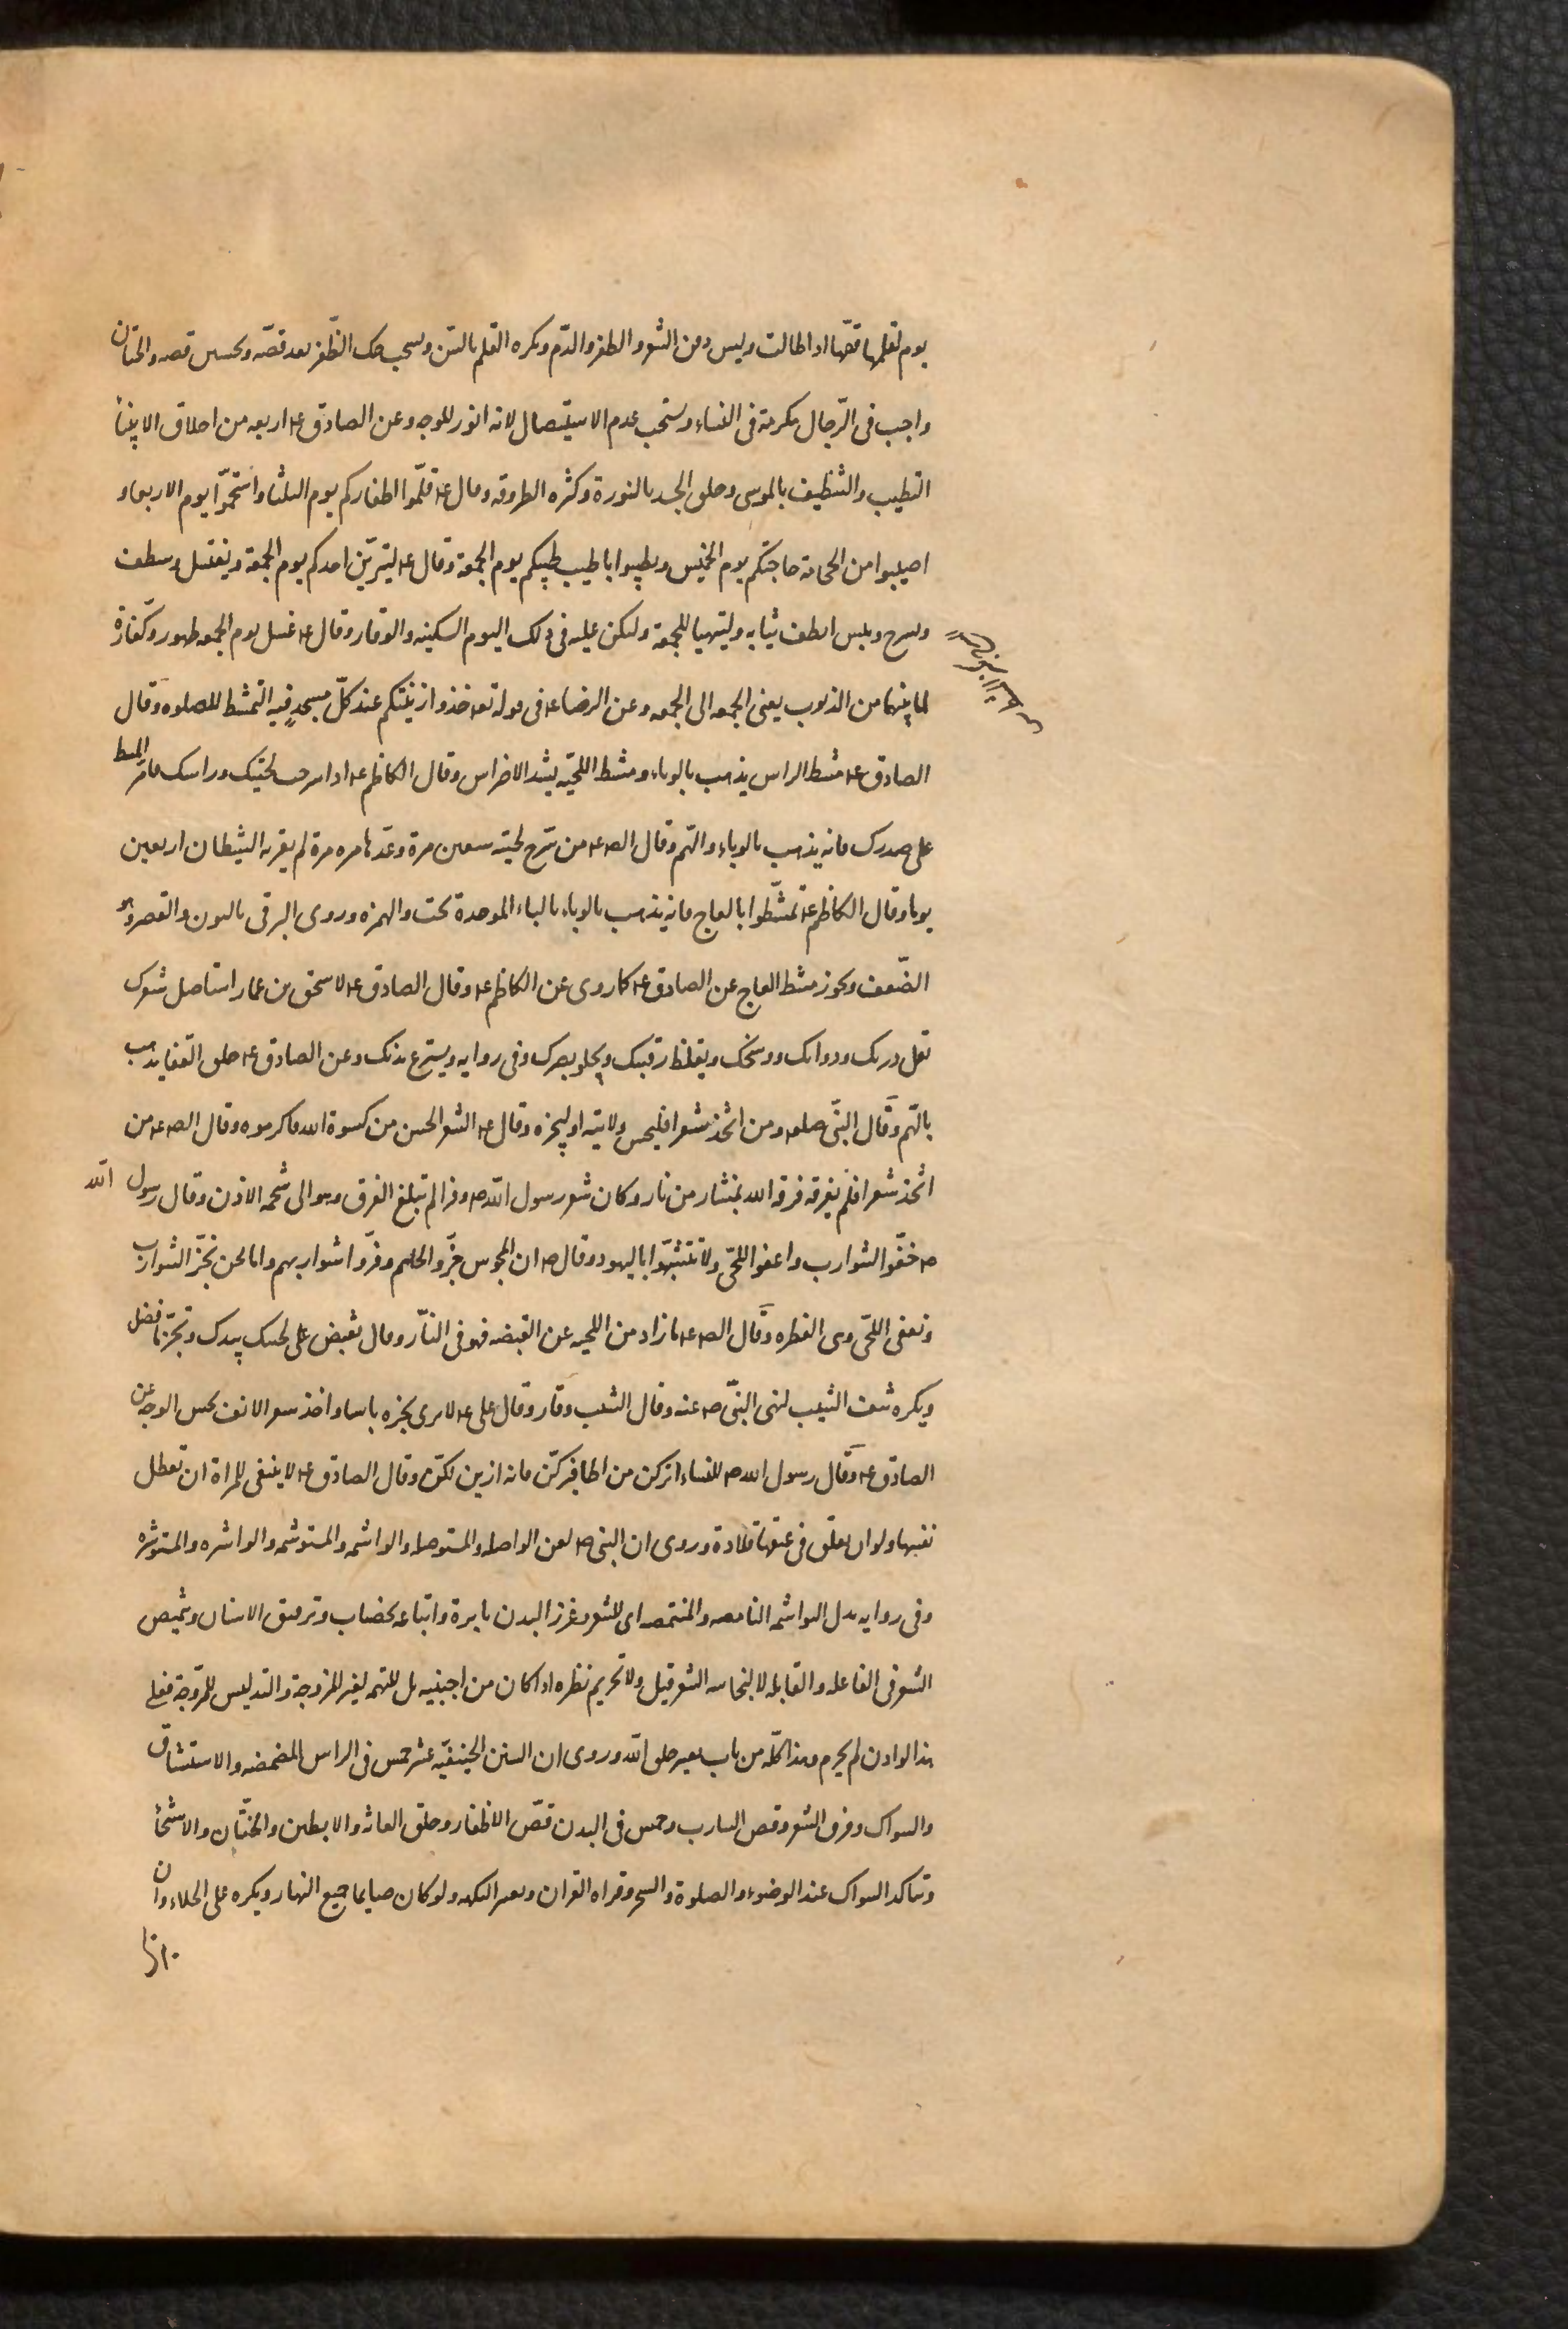 يوم تقلمها قصها اذا طالت وليس دفن الشعر والظفر والدم ويكره القلم بالسن ويستحب حك الظفر بعد قصه وتحسين قصه والختان
واجب فى الرّجال مكرمة فى النساء ويستحب عدم الاستيصال لانه انور للوجه وعن الصادق ع اربعه من اخلاق الانبيا
التطيب والتنظيف بالموسى وحلق الجسد بالنورة وكثره الطروقه وقال ع قلّموا اظفاركم يوم الثلثا واستحمّوا يوم الاربعا و
اصيبوا من الحجامة حاجتكم يوم الخميس وتطيبوا باطيب طيبكم يوم الجمعة وقال ع ليتزيّن احدكم يوم الجمعة ويغتسل ويتطيب
ويسرح ويلبس انظف ثيابه وليتهيا للجمعة وليكن عليه فى ذلك اليوم السكينه والوقار وقال ع غسل يوم الجمعه طهور وكفّارة
لما بينهما من الذنوب يعنى الجمعه الى الجمعه وعن الرضا ع فى قوله تع خذوا زينتكم عند كلّ مسجد فيه التمشط للصلوه وقال
الصادق ع مشط الراس يذهب بالوباء ومشط اللحيّه يشد الاضراس وقال الكاظم ع اذا سرحت لحيتك وراسك فامرّ المشط
على صدرك فانه يذهب بالوباء والهم وقال الص ع من سرّح لحيته سبعين مرة وعدّها مره مرة لم يقربه الشيطان اربعين
يوما وقال الكاظم ع تمشّطوا بالعاج فانه يذهب بالوباء بالباء الموحدة تحت والهمزه وروى البرقى بالنون والقصر وهو
الضّعف ويجوز مشط العاج عن الصادق ع كما روى عن الكاظم ع وقال الصادق ع لاسحق بن عمار استاصل شعرك
تقل درنك ودوابك ووسخك ويغلظ رقبتك ويجلو بصرك وفى روايه ويستريح بدنك وعن الصادق ع حلق القفا يذهب
بالهّم وقال النبّى صلعم ومن اتخذ شعرا فليحسن ولايته او ليجزه وقال ع الشعر الحسن من كسوة الله فاكرموه وقال الص ع من
اتخذ شعرا فلم يفرقه فرقه الله بمنشار من نار وكان شعر رسول الله ص وفرا لم تبلغ الفرق وهو الى شحمه الاذن وقال رسول الله
ص حفّوا الشوارب واعفوا اللحّى ولا تتشبّهوا باليهود وقال ص ان المجوس جزّوا لحاهم وفرّوا شواربهم وانا نحن نجزّ الشوارب
ونعفى اللحّى وهى الفطره وقّال الص ع ما زاد من اللحيه عن القبضه فهو فى النّار وقال تقبض على لحيتك بيدك وتجزّ ما فضل
ويكره نتف الشيب لنهى النبّى ص عنه وقال الشيب وقار وقال على ع لا يرى بجزه باسا واخذ شعر الانف يحسن الوجه عن
الصادق ع وقّال رسول الله ص للنساء اتركن من اظافيركنّ فانه ازين لكنّ وقال الصادق ع لا ينبغى للمراة ان تعطل
نفسها ولو ان تعلّق فى عنقها قلادة وروى ان النبّى ص لعن الواصله والمستوصله والواشمه والمستوشمه والواشره والمستوشره
وفى روايه بدل الواشمه النامصه والمنتمصه اى للشعر وغرز البدن بابرة واتباعه بخضاب وترقيق الاسنان وتنميص
الشعر فى الفاعله والقابله لا لنجاسه الشعر قيل ولا تحريم نظره اذا كان من اجنبيه بل للتهمه لغير المزوجة والتدليس للمزوّجة فعلى
هذا لو اذن لم يحرم وهذا كلّه من باب تغيير خلق الله وروى ان السنن الحنيفيّه عشر خمس فى الراس المضمضه والاستنشاق
والسواك وفرق الشعر وقص الشارب وخمس فى البدن قصّ الاظفار وحلق العانه والابطين والختّان والاستنجا
وتتاكد السواك عند الوضوء والصلوة والسحر وقراه القران وتغير النكهه ولو كان صايما جميع النهار ويكره على الخلاء وان